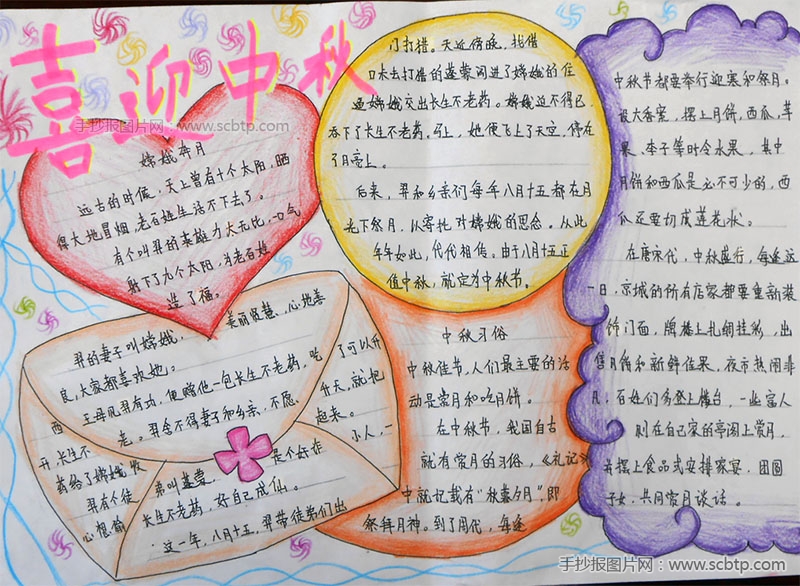 喜迎中秋
手抄报图片网：www.scbtp.com
嫦娥奔月
远古的时候，天上曾有十个太阳，晒
得大地冒烟，老百姓生活不下去了。
有个叫羿的英雄力大无比，一口气
射下了九个太阳，为老百姓
造了福。
羿的妻子叫嫦娥， 美丽贤慧，心地善
良，大家都喜欢她。
王母见羿有功，便赠他一包长生不老药，吃 了可以升
西 走。羿舍不得妻子和乡亲，不愿、 升天，就把
开，长生不 起来。
药给了嫦娥收 是个奸诈 小人，一
羿有个徒 弟叫蓬蒙，
心想偷 长生不老药，好自己成仙。
这一年，八月十五，羿带徒弟们出
门打猎。天近傍晚，找借
口未去打猎的蓬蒙闯进了嫦娥的住
逼嫦娥交出长生不老药。嫦娥迫不得已，
吞下了长生不老药。马上，她便飞上了天空，停在
了月亮上。
后来，羿和乡亲们每年八月十五都在月
光下祭月，以寄托对嫦娥的思念。从此
年年如此，代代相传。由于八月十五正
值中秋，就定为中秋节。
中秋习俗
中秋佳节，人们最主要的活
动是赏月和吃月饼。
在中秋节，我国自古
就有赏月的习俗，《礼记》
中就记载有“秋暮夕月”，即
祭拜月神。到了周代，每逢
中秋节都要举行迎寒和祭月。
设大香案，摆上月饼，西瓜，苹
果、李子等时令水果，其中
月饼和西瓜是必不可少的，西
瓜还要切成莲花状。
在唐宋代，中秋盛行，每逢这
一日，京城的所有店家都要重新装
饰门面，牌楼上扎绸挂彩，出
售月饼和新鲜佳果，夜市热闹非
凡，百姓们多登上楼台，一些富人
则在自己家的亭阁上赏月，
并摆上食品或安排家宴，团圆
子女，共同赏月谈话。
手抄报图片网：www.scbtp.com